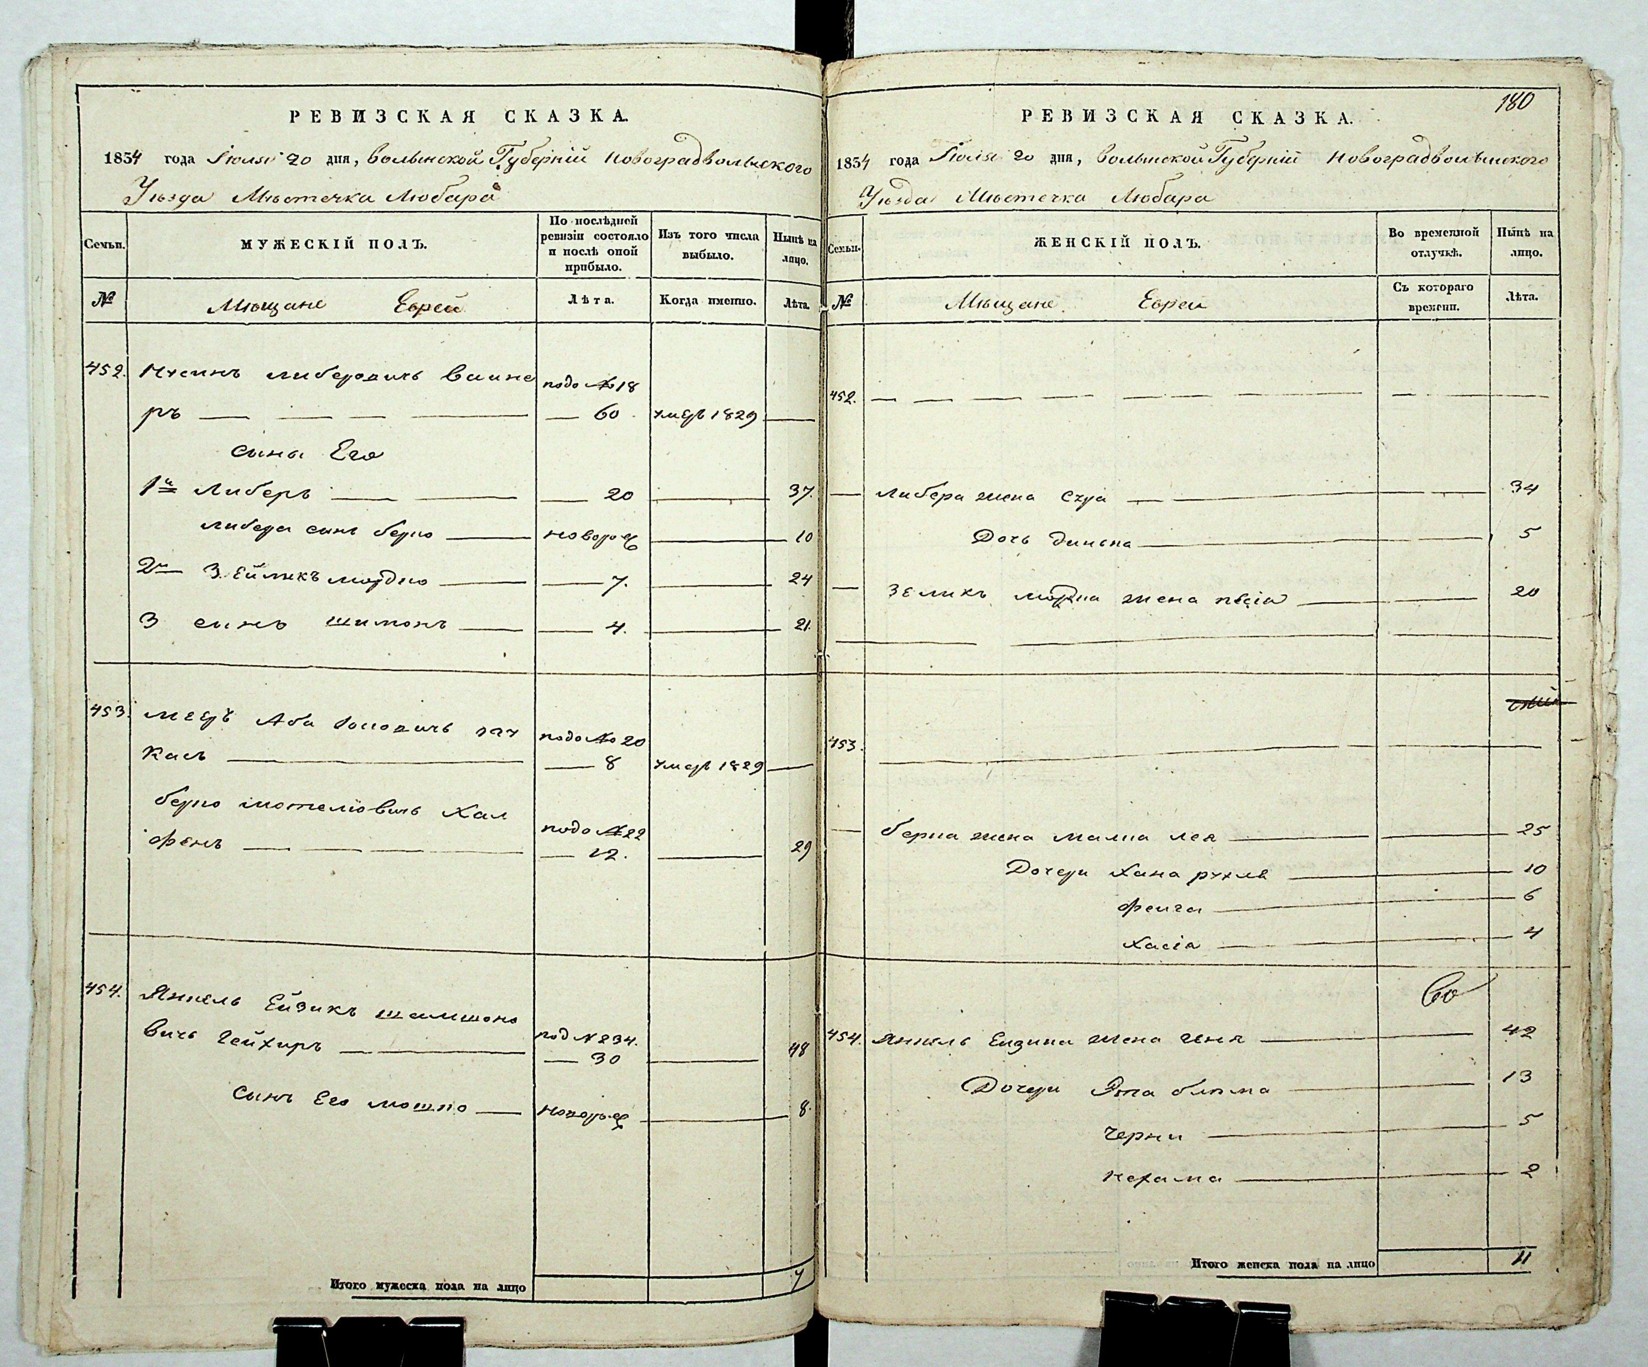 РЕВИЗСКАЯ СКАЗКА.
1834 года Июля 20 дня, Волынской Губерніи Новоградволынского
Уѣзда Мѣстечка Любара
Семьи.
МУЖЕСКІЙ ПОЛЪ.
По послѣдней ревизіи состояло и послѣ оной прибыло.
Изъ того числа выбыло.
Нынѣ на лицо.
№
Мѣщане Евреи
Лѣта.
Когда именно.
Лѣта.
452. Нусинъ Либеровичъ Вайне подо № 18
ръ — 60 умеръ 1829 —
сыны Его
1й Либеръ — 20 — 37.
Либера сынъ Берко — новорож — 10
2й Зейликъ Мордко — 7. — 24
3 сынъ Шимонъ — 4. — 21.
453. Аба подо № 20
касъ — 8 умеръ 1829 —
Берко Мотеліовичъ Хал подо № 22
фенъ — 12. — 29
454. Янкель Ейзикъ Шамшоно
вичъ Гейхиръ — под № 234.
— 30 — 48
сынъ Его Мошко — новорож — 8.
Итого мужеска пола на лицо 7
180
РЕВИЗСКАЯ СКАЗКА.
1834 года Июля 20 дня, Волынской Губерніи Новоградволынского
Уѣзда Мѣстечка Любара
Семьи.
ЖЕНСКІЙ ПОЛЪ.
Во временной отлучкѣ.
Нынѣ на лицо.
№
Мѣщане Евреи
Съ котораго времени.
Лѣта.
452. —
— Либера жена Сура — 34
Дочь — 5
— Зеликъ Мордка жена Песіа — 20
453. —
— Берка жена Малка Лея — 25
Дочери Хана Рухля — 10
Фейга — 6
Хасіа — 4
454. Янкель Ейзика жена Геня — 42
Дочери Эта Блюма — 13
Черни — 5
Нехама — 2
Итого женска пола на лицо 11